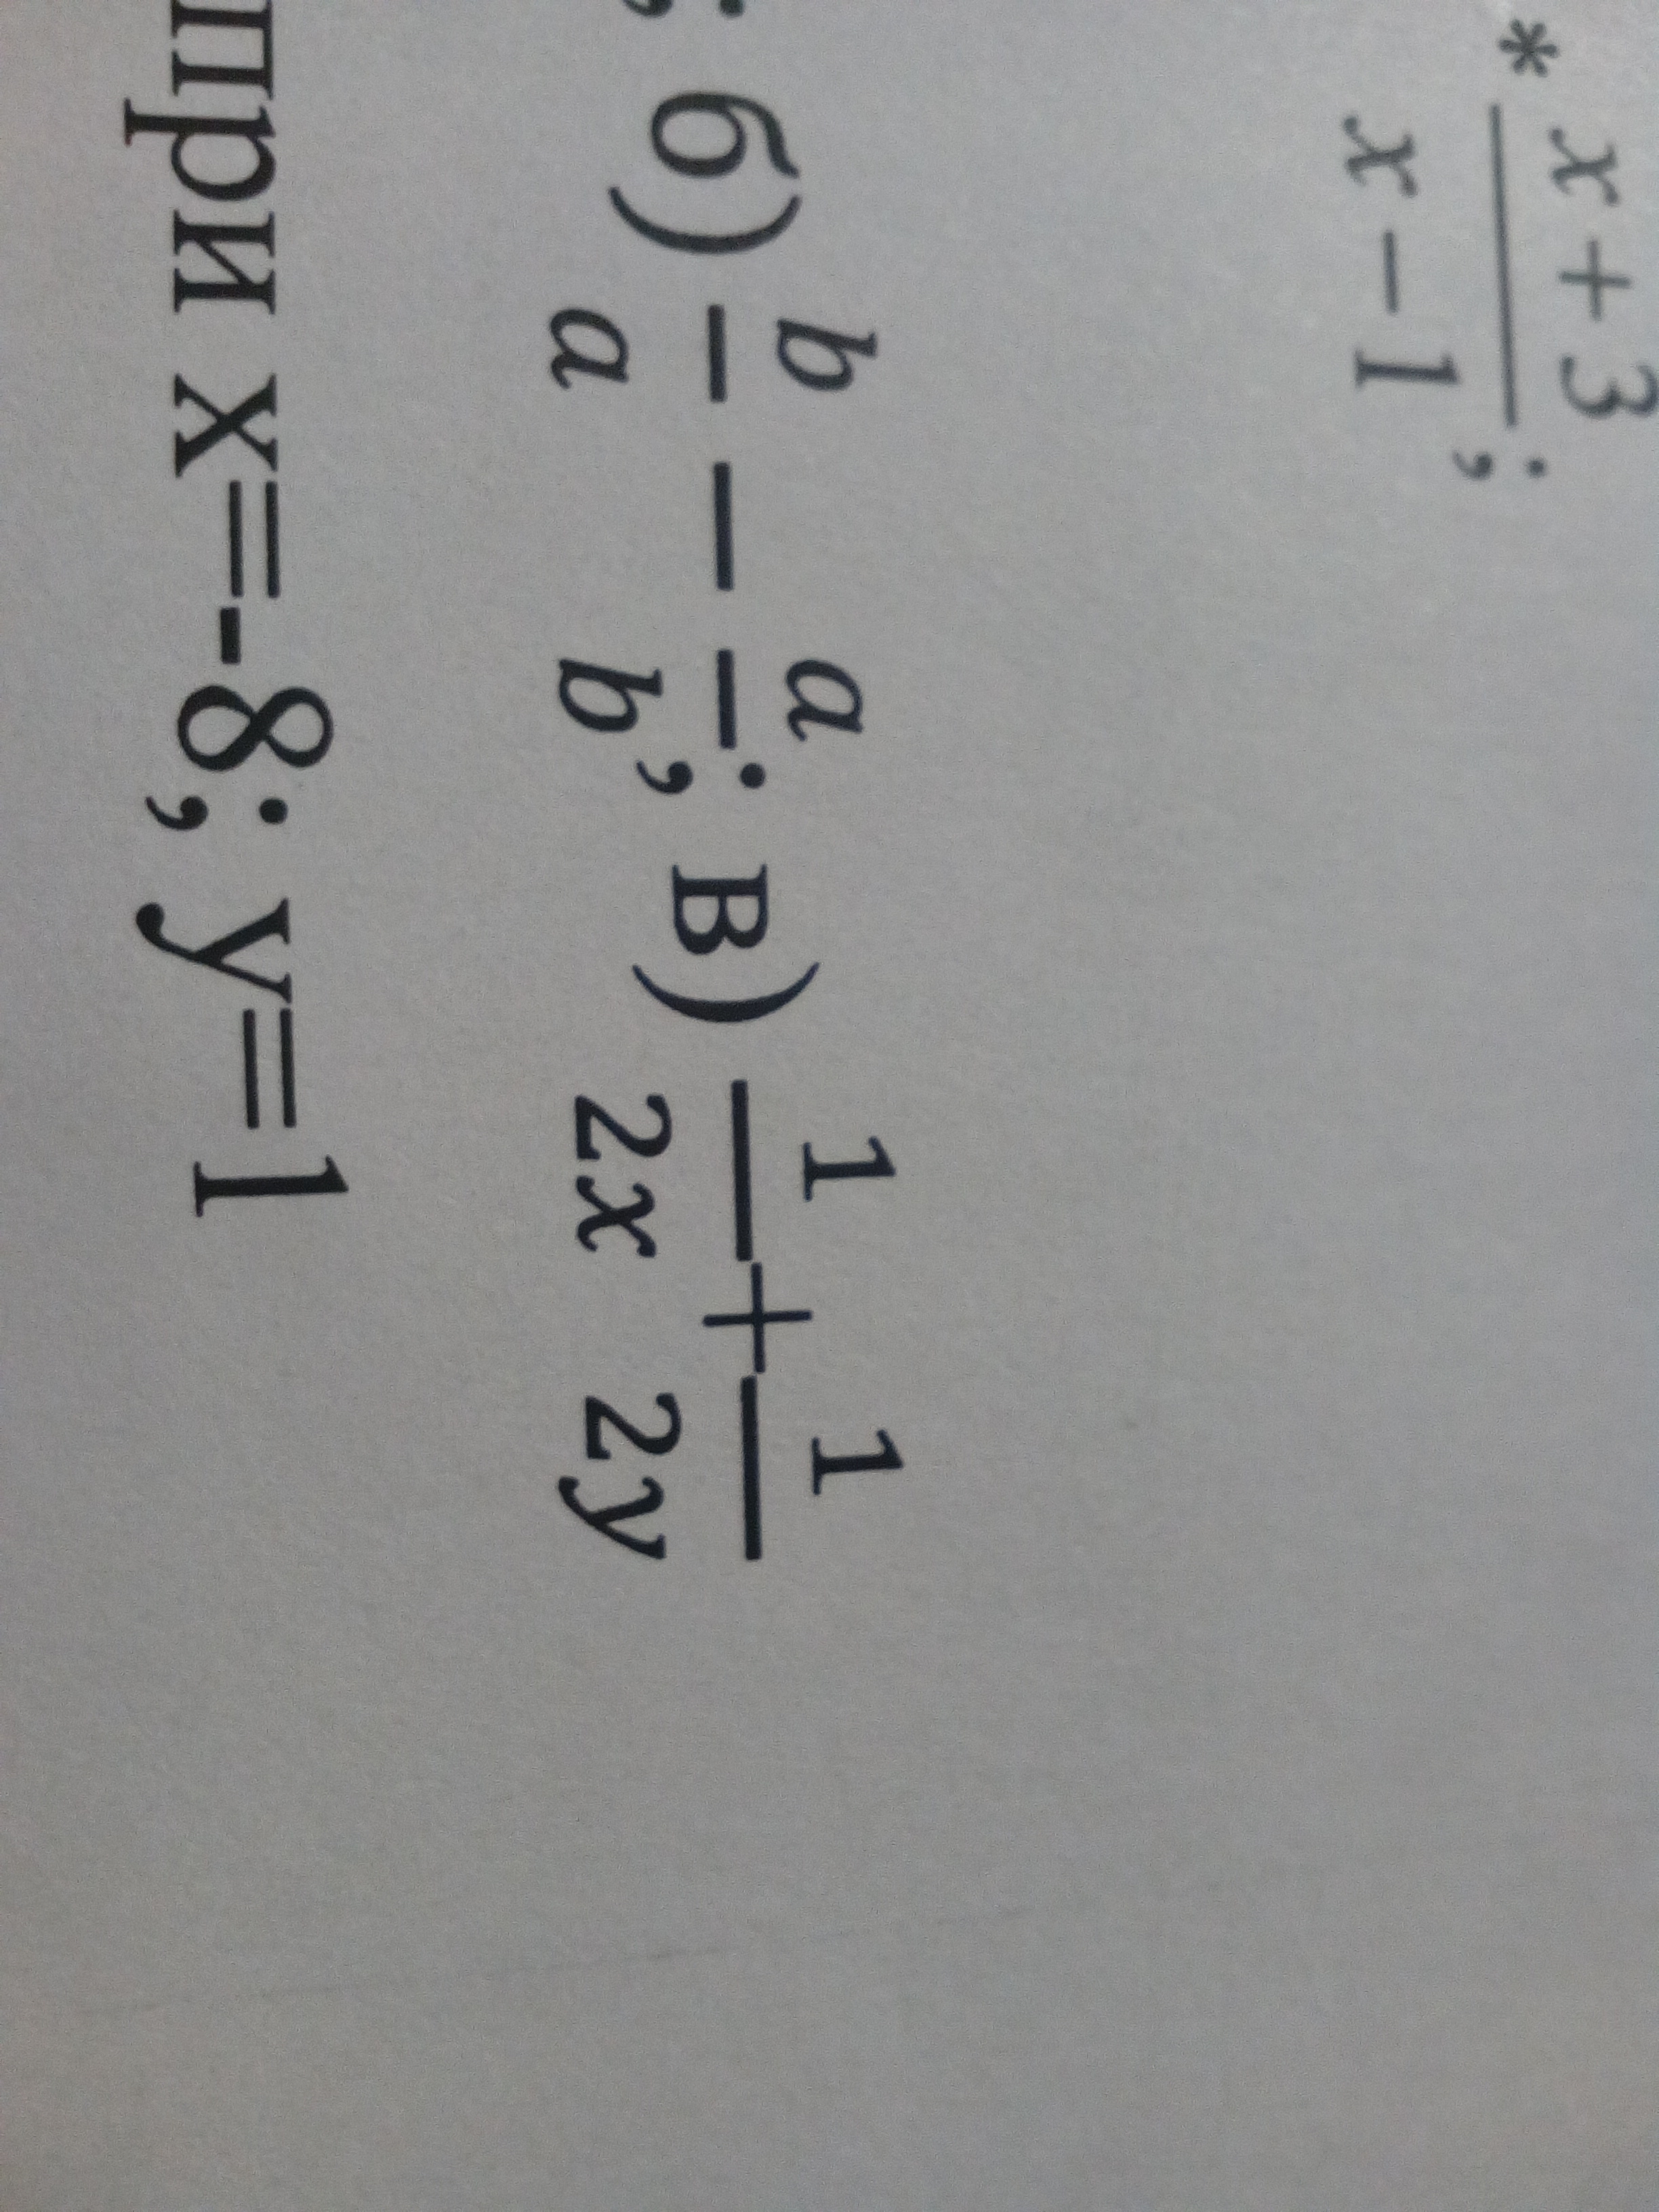 * x + 3 / x − 1 ;
; б) b/a − a/b ; в) 1/2x + 1/2y
при x=-8; y=1